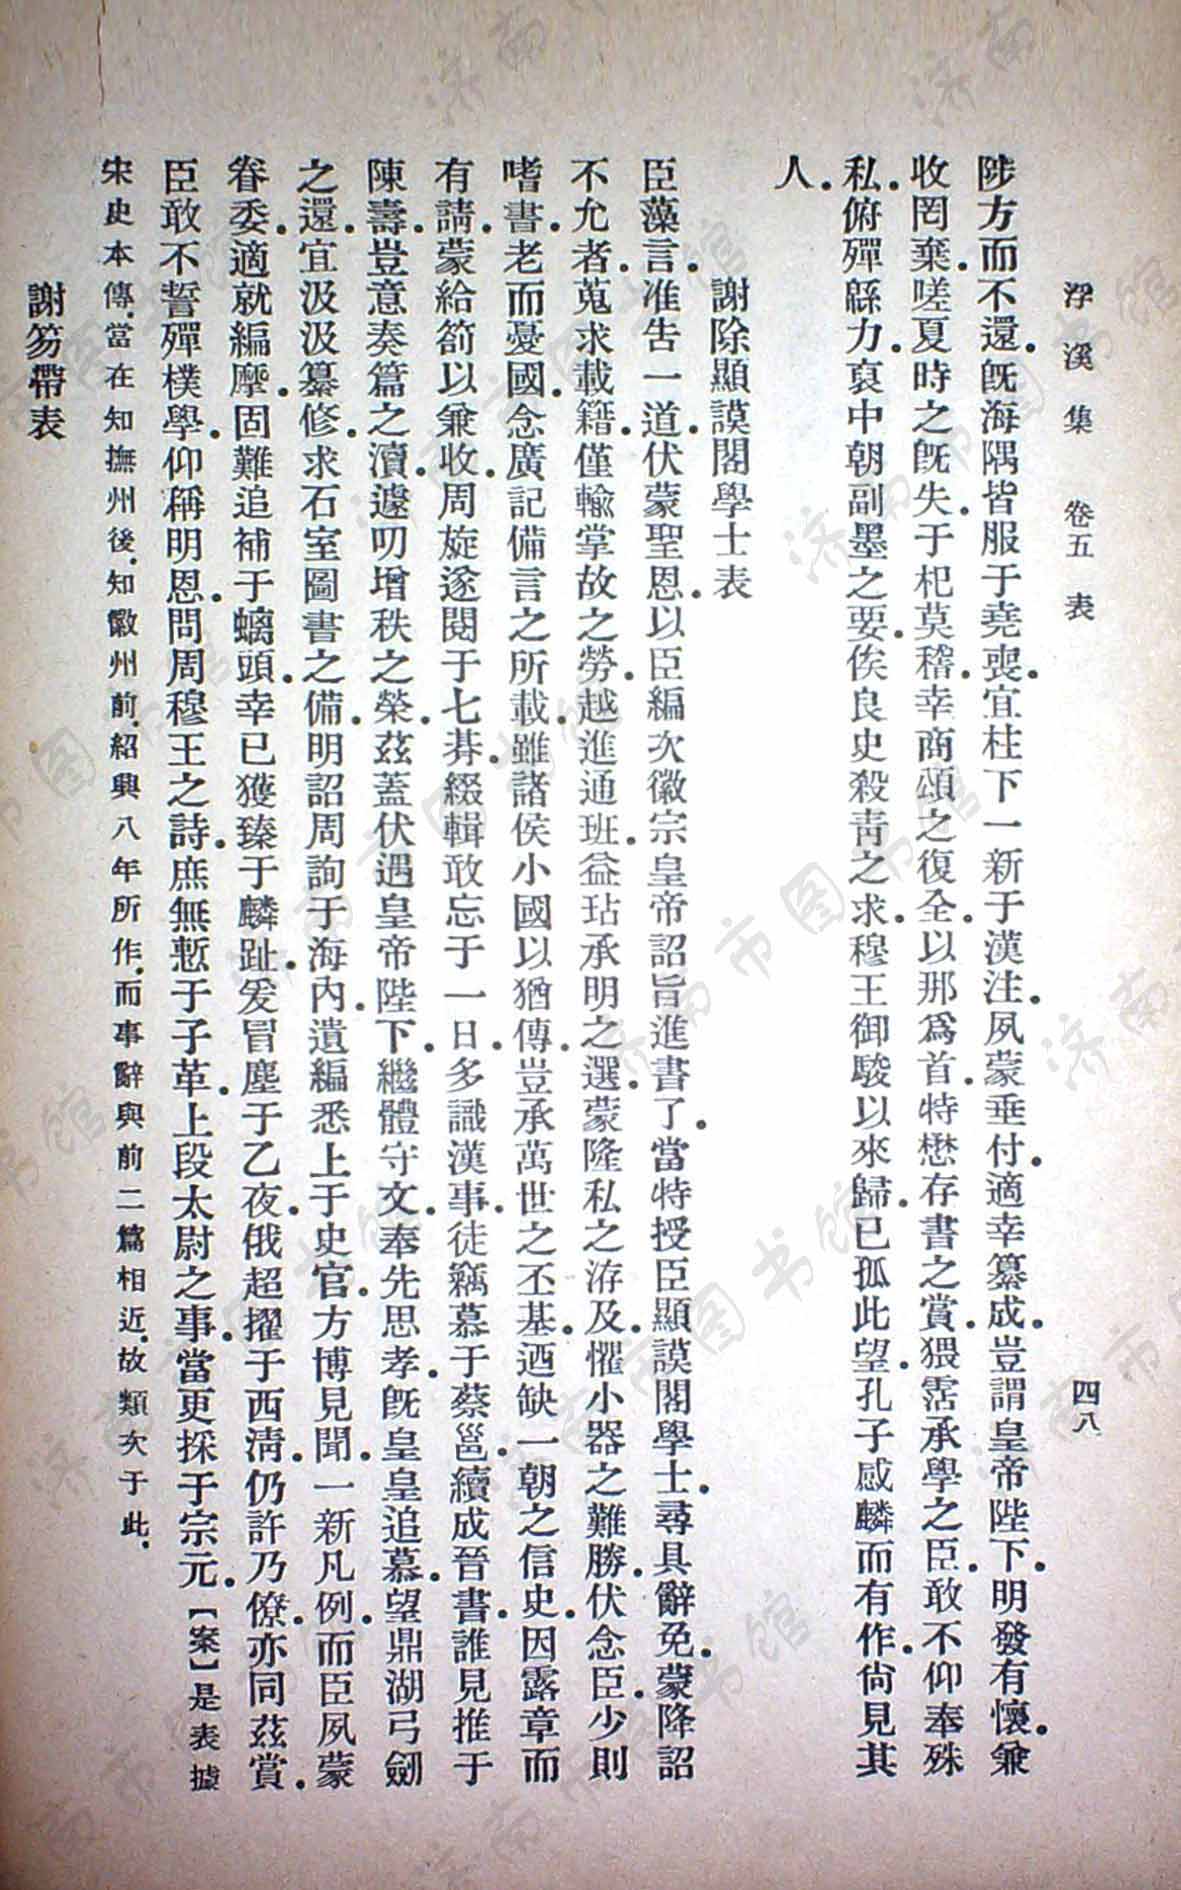 浮溪集　卷五　表　四八
陟方而不還.旣海隅皆服于堯喪.宜柱下一新于漢注.夙蒙垂付.適幸纂成.豈謂皇帝陛下.明發有懷.兼
收罔棄.嗟夏時之旣失.于杞莫稽.幸商頌之復全.以那爲首.特懋存書之賞.猥霑承學之臣.敢不仰奉殊
私.俯殫緜力.裒中朝副墨之要.俟良史殺靑之求.穆王御駿以來歸.已孤此望.孔子感麟而有作.尙見其
人.
謝除顯謨閣學士表
臣藻言.准吿一道.伏蒙聖恩.以臣編次徽宗皇帝詔旨進書了.當特授臣顯謨閣學士.尋具辭免.蒙降詔
不允者.蒐求載籍.僅輸掌故之勞.越進通班.益玷承明之選.蒙隆私之洊及.懼小器之難勝.伏念臣.少則
嗜書.老而憂國.念廣記備言之所載.雖諸侯小國以猶傳.豈承萬世之丕基.迺缺一朝之信史.因露章而
有請.蒙給箚以兼收.周旋遂閱于七朞.綴輯敢忘于一日.多識漢事.徒竊慕于蔡邕.續成晉書.誰見推于
陳壽.豈意奏篇之瀆.遽叨增秩之榮.茲蓋伏遇皇帝陛下.繼體守文.奉先思孝.旣皇皇追慕.望鼎湖弓劒
之還.宜汲汲纂修.求石室圖書之備.明詔周詢于海內.遺編悉上于史官.方博見聞.一新凡例.而臣夙蒙
眷委.適就編摩.固難追補于螭頭.幸已獲臻于麟趾.爰冒塵于乙夜.俄超擢于西淸.仍許乃僚.亦同茲賞.
臣敢不誓殫樸學.仰稱明恩.問周穆王之詩.庶無慙于子革.上段太尉之事.當更採于宗元.【案】是表據
宋史本傳.當在知撫州後.知徽州前.紹興八年所作.而事辭與前二篇相近.故類次于此.
謝笏帶表
济南市图书馆